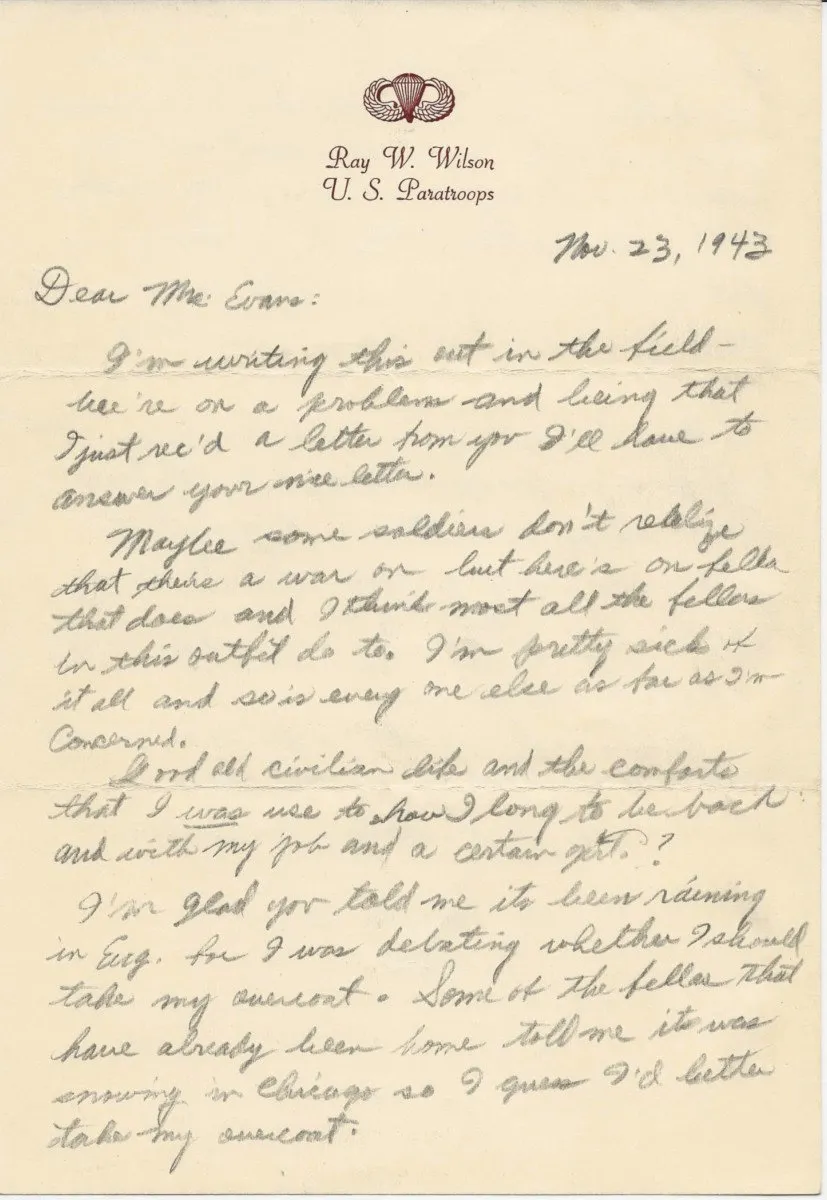 Ray W. Wilson
U. S. Paratroops
Nov. 23, 1943
Dear Mrs. Evans:
I'm writing this out in the field –
we're on a problem and being that
I just rec'd a letter from you I'll have to
answer your nice letter.
Maybee some soldiers don't relelize
that theirs a war on but here's on fella
that does and I think most all the fellas
in this outfit do to. I'm pretty sick of
it all and so is every one else as far as I'm
Concerned.
Good old civilian life and the comforts
that I was use to, how I long to be back
and with my job and a certain girl. ?
I'm glad you told me its been raining
in Eug. for I was debating whether I should
take my overcoat. Some of the fellas that
have already been home told me it was
snowing in Chicago so I guess I'd better
take my overcoat.